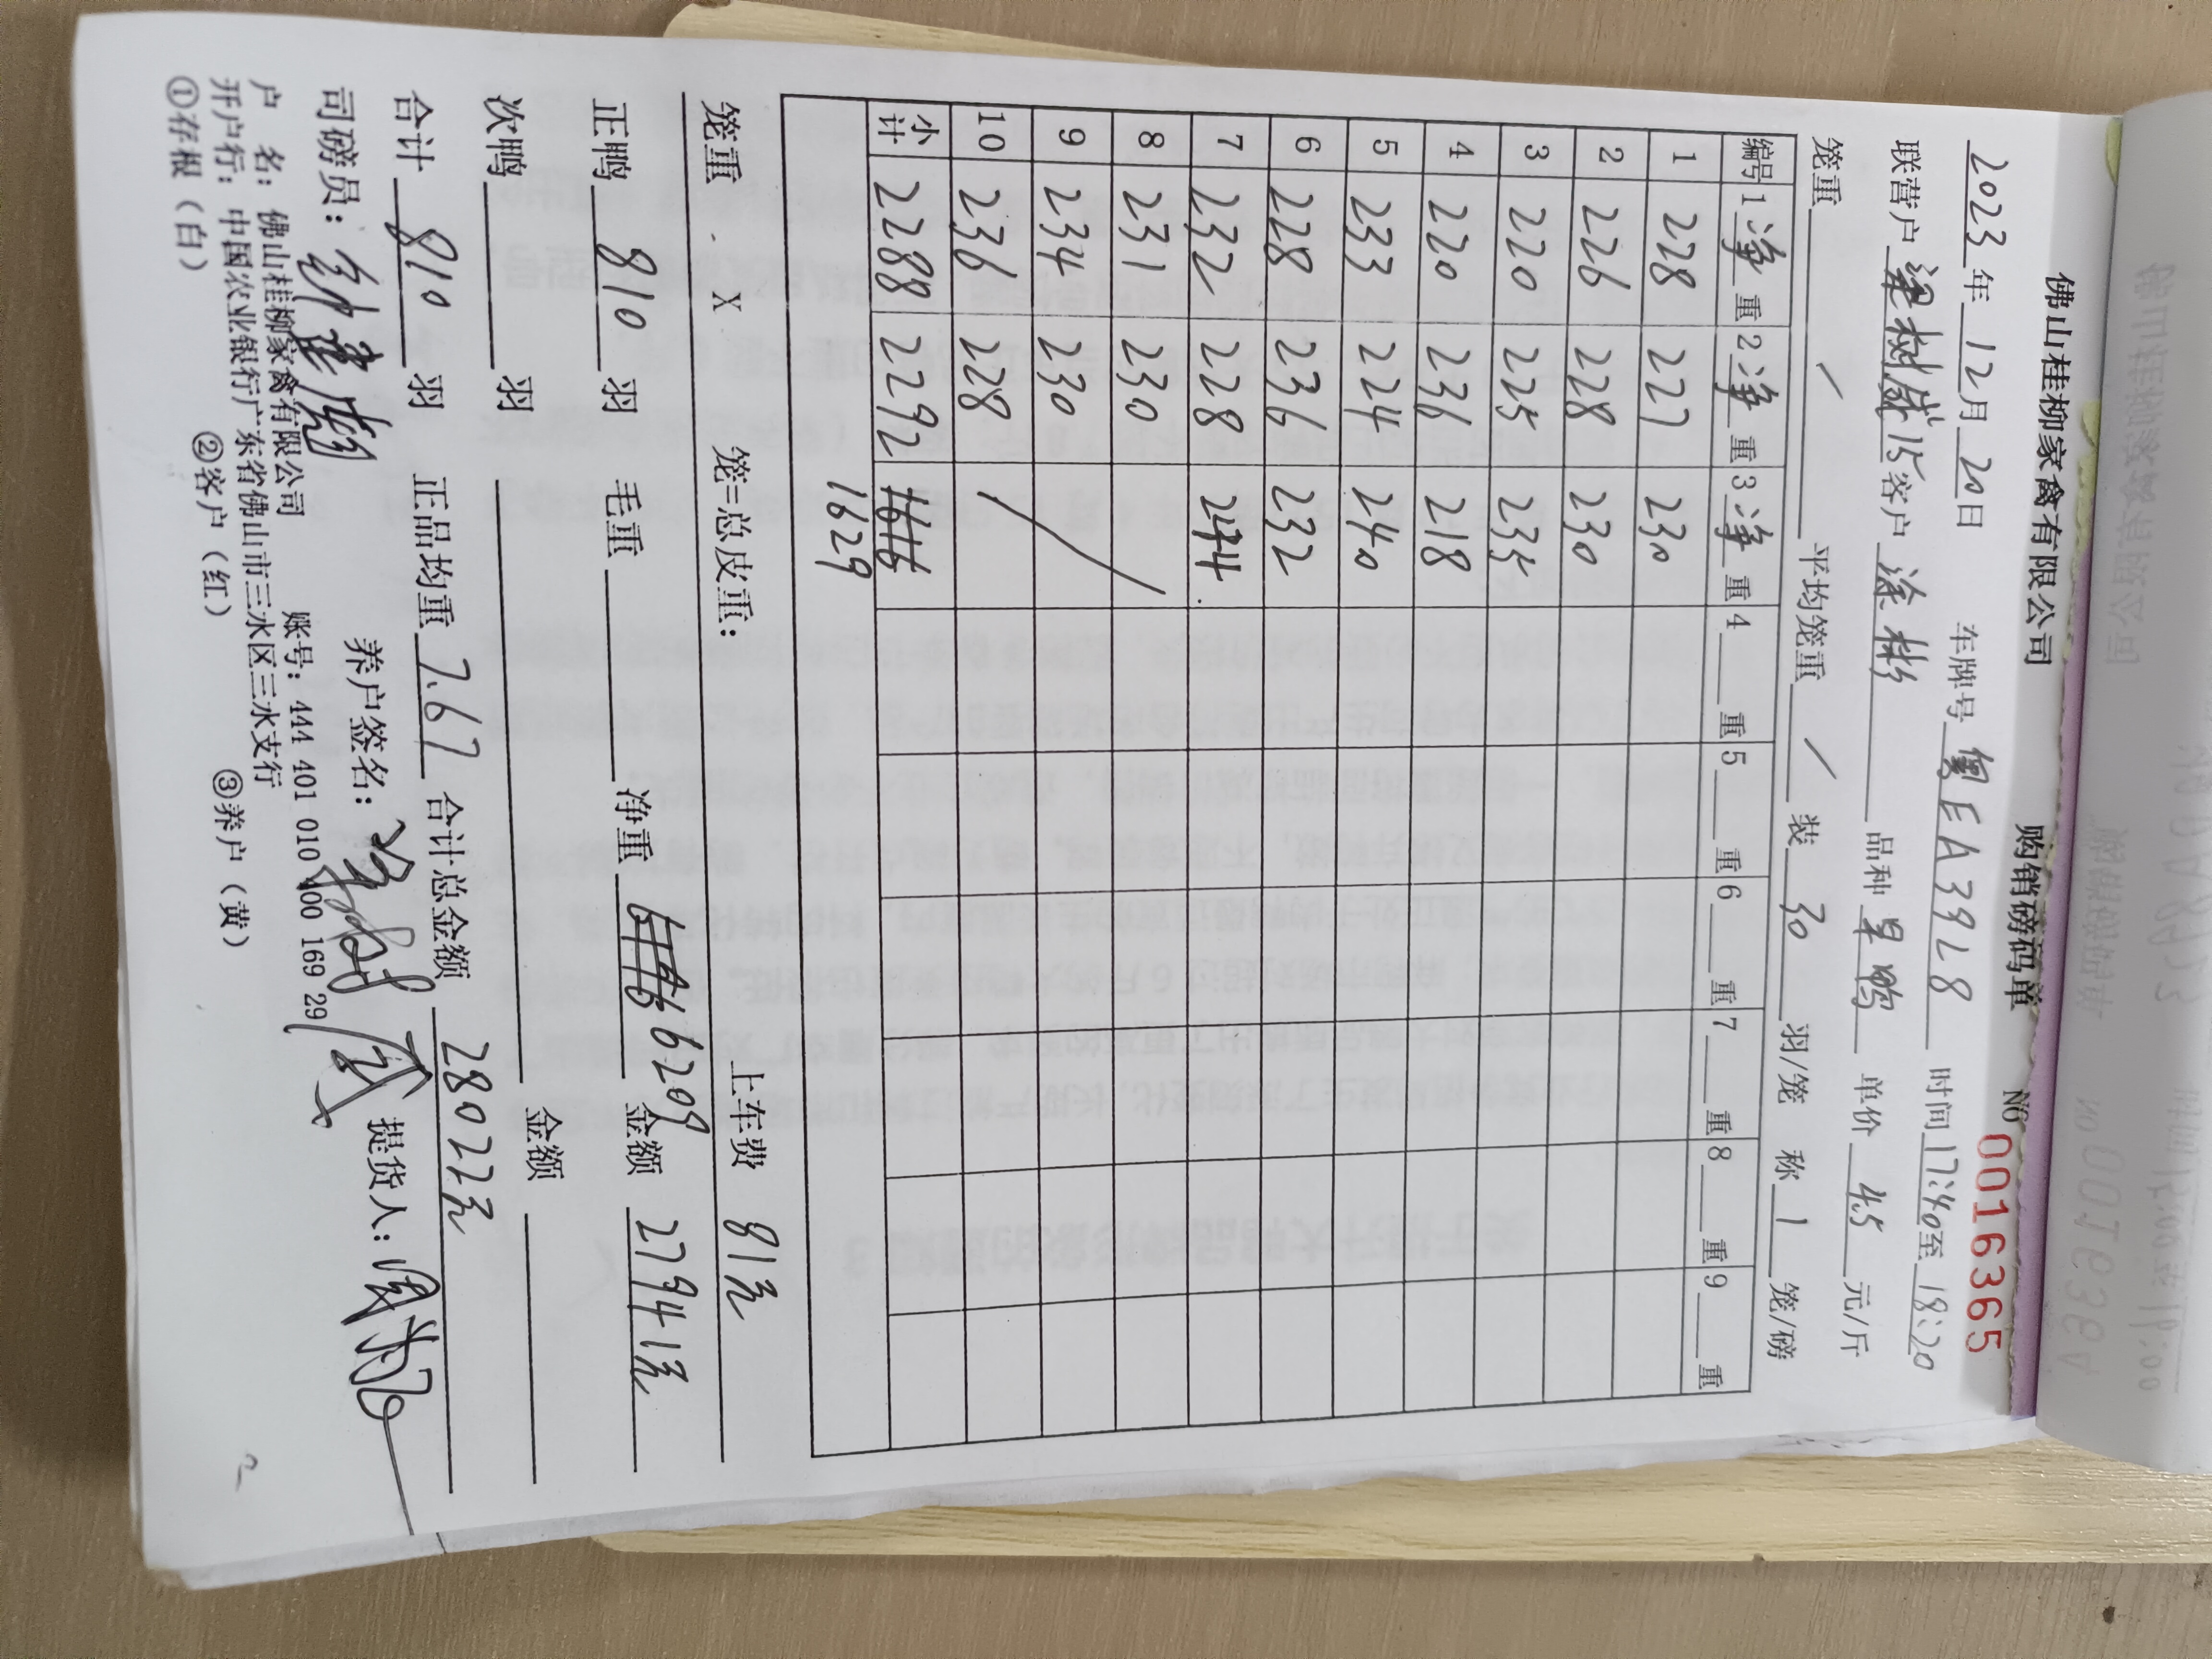 佛山桂柳家禽有限公司 购销磅码单 № 0016365
2023年12月20日 车牌号 粤EA3928 时间17:40至18:20
联营户 梁树盛15 客户 涂彬 品种 旱鸭 单价 4.5 元/斤
笼重 / 平均笼重 / 装 30 羽/笼 称 1 笼/磅
编号 1净重 2净重 3净重 4 重 5 重 6 重 7 重 8 重 9 重
1 228 227 230
2 226 228 230
3 220 225 235
4 220 236 218
5 233 224 240
6 228 236 232
7 232 228 244
8 231 230
9 234 230
10 236 228
小计 2288 2292
1629
笼重 X 笼=总皮重: 上车费 81元
正鸭 810 羽 毛重 净重 6209 金额 27941元
次鸭 羽 金额
合计 810 羽 正品均重 7.67 合计总金额 28022元
司磅员: 养户签名: 提货人:
户 名: 佛山桂柳家禽有限公司 账号: 444 401 010 400 169 29
开户行: 中国农业银行广东省佛山市三水区三水支行
①存根（白） ②客户（红） ③养户（黄）